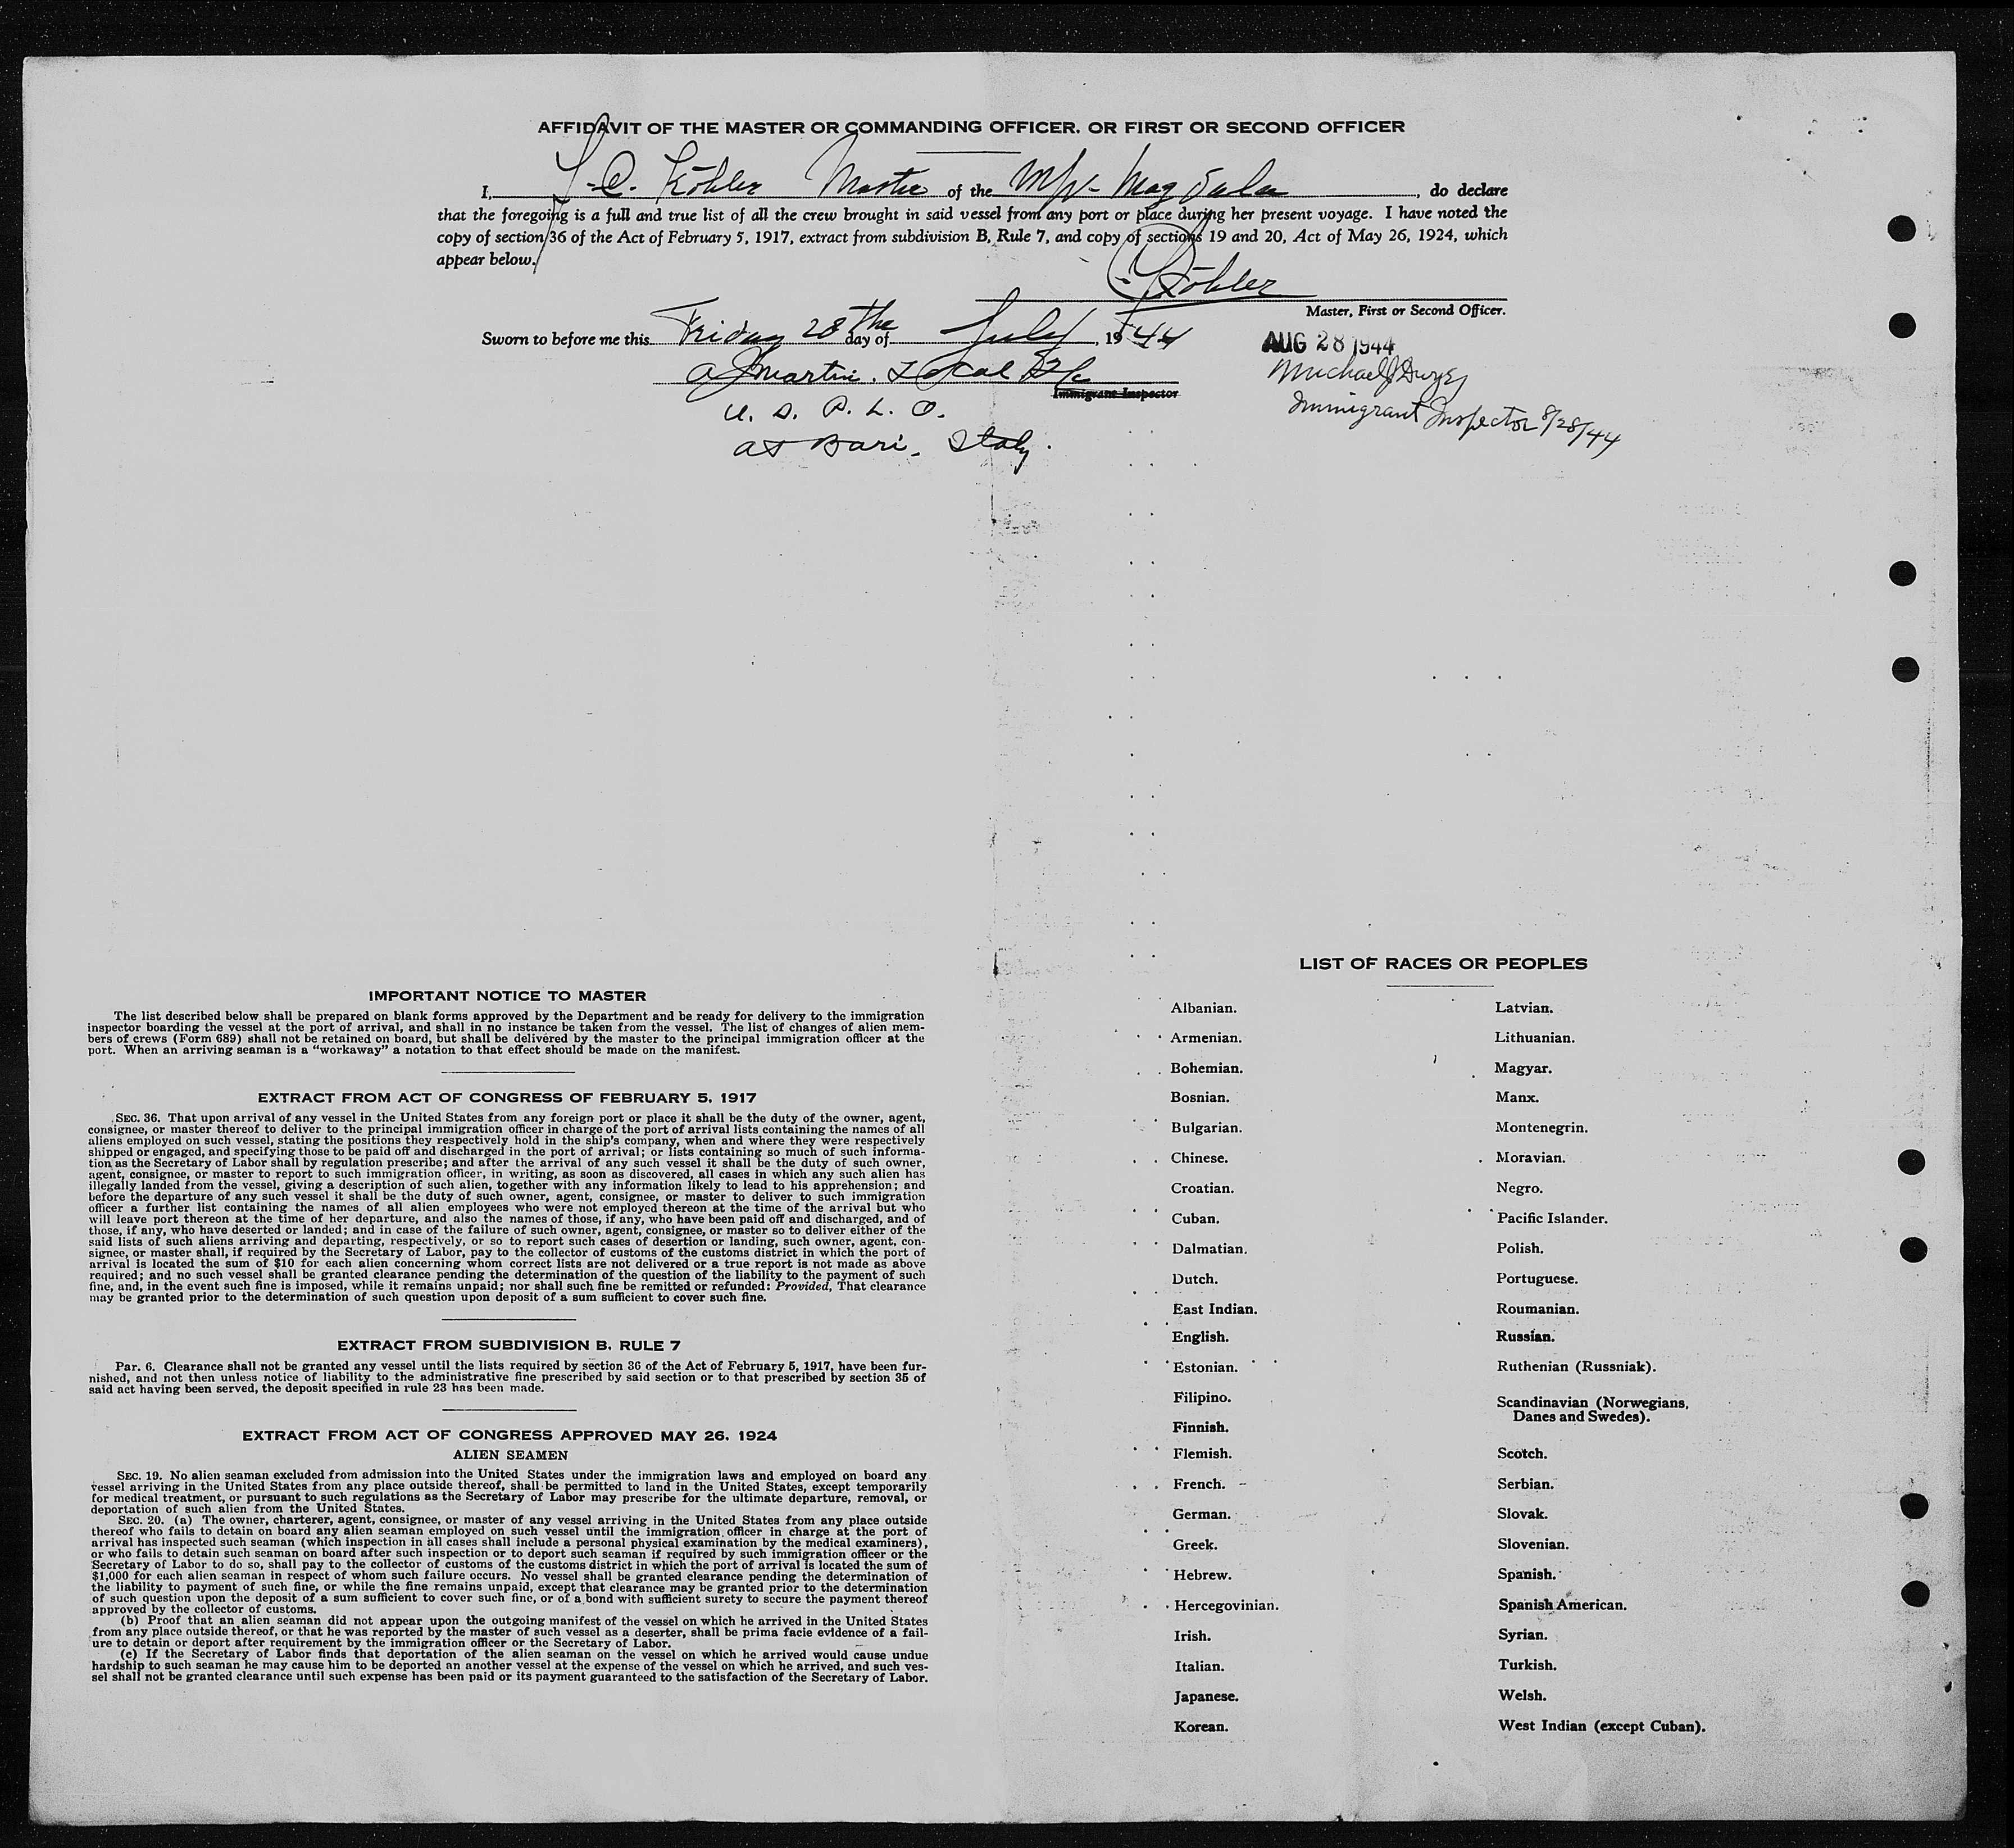 AFFIDAVIT OF THE MASTER OR COMMANDING OFFICER, OR FIRST OR SECOND OFFICER
I, Köhler Master of the M/V- Magdala, do declare
that the foregoing is a full and true list of all the crew brought in said vessel from any port or place during her present voyage. I have noted the
copy of section 36 of the Act of February 5, 1917, extract from subdivision B, Rule 7, and copy of sections 19 and 20, Act of May 26, 1924, which
appear below.
Köhler
Master, First or Second Officer.
Sworn to before me this Friday 28 the day of July, 1944
AUG 28 1944
Martin. Local
Immigrant Inspector
Michael J
U. S. P. L. O.
Immigrant Inspector 8/28/44
at Bari. Italy.
IMPORTANT NOTICE TO MASTER
The list described below shall be prepared on blank forms approved by the Department and be ready for delivery to the immigration
inspector boarding the vessel at the port of arrival, and shall in no instance be taken from the vessel. The list of changes of alien mem-
bers of crews (Form 689) shall not be retained on board, but shall be delivered by the master to the principal immigration officer at the
port. When an arriving seaman is a "workaway" a notation to that effect should be made on the manifest.
EXTRACT FROM ACT OF CONGRESS OF FEBRUARY 5, 1917
SEC. 36. That upon arrival of any vessel in the United States from any foreign port or place it shall be the duty of the owner, agent,
consignee, or master thereof to deliver to the principal immigration officer in charge of the port of arrival lists containing the names of all
aliens employed on such vessel, stating the positions they respectively hold in the ship's company, when and where they were respectively
shipped or engaged, and specifying those to be paid off and discharged in the port of arrival; or lists containing so much of such informa-
tion as the Secretary of Labor shall by regulation prescribe; and after the arrival of any such vessel it shall be the duty of such owner,
agent, consignee, or master to report to such immigration officer, in writing, as soon as discovered, all cases in which any such alien has
illegally landed from the vessel, giving a description of such alien, together with any information likely to lead to his apprehension; and
before the departure of any such vessel it shall be the duty of such owner, agent, consignee, or master to deliver to such immigration
officer a further list containing the names of all alien employees who were not employed thereon at the time of the arrival but who
will leave port thereon at the time of her departure, and also the names of those, if any, who have been paid off and discharged, and of
those, if any, who have deserted or landed; and in case of the failure of such owner, agent, consignee, or master so to deliver either of the
said lists of such aliens arriving and departing, respectively, or so to report such cases of desertion or landing, such owner, agent, con-
signee, or master shall, if required by the Secretary of Labor, pay to the collector of customs of the customs district in which the port of
arrival is located the sum of $10 for each alien concerning whom correct lists are not delivered or a true report is not made as above
required; and no such vessel shall be granted clearance pending the determination of the question of the liability to the payment of such
fine, and, in the event such fine is imposed, while it remains unpaid; nor shall such fine be remitted or refunded: Provided, That clearance
may be granted prior to the determination of such question upon deposit of a sum sufficient to cover such fine.
EXTRACT FROM SUBDIVISION B, RULE 7
Par. 6. Clearance shall not be granted any vessel until the lists required by section 36 of the Act of February 5, 1917, have been fur-
nished, and not then unless notice of liability to the administrative fine prescribed by said section or to that prescribed by section 35 of
said act having been served, the deposit specified in rule 23 has been made.
EXTRACT FROM ACT OF CONGRESS APPROVED MAY 26, 1924
ALIEN SEAMEN
SEC. 19. No alien seaman excluded from admission into the United States under the immigration laws and employed on board any
vessel arriving in the United States from any place outside thereof, shall be permitted to land in the United States, except temporarily
for medical treatment, or pursuant to such regulations as the Secretary of Labor may prescribe for the ultimate departure, removal, or
deportation of such alien from the United States.
SEC. 20. (a) The owner, charterer, agent, consignee, or master of any vessel arriving in the United States from any place outside
thereof who fails to detain on board any alien seaman employed on such vessel until the immigration officer in charge at the port of
arrival has inspected such seaman (which inspection in all cases shall include a personal physical examination by the medical examiners),
or who fails to detain such seaman on board after such inspection or to deport such seaman if required by such immigration officer or the
Secretary of Labor to do so, shall pay to the collector of customs of the customs district in which the port of arrival is located the sum of
$1,000 for each alien seaman in respect of whom such failure occurs. No vessel shall be granted clearance pending the determination of
the liability to payment of such fine, or while the fine remains unpaid, except that clearance may be granted prior to the determination
of such question upon the deposit of a sum sufficient to cover such fine, or of a bond with sufficient surety to secure the payment thereof
approved by the collector of customs.
(b) Proof that an alien seaman did not appear upon the outgoing manifest of the vessel on which he arrived in the United States
from any place outside thereof, or that he was reported by the master of such vessel as a deserter, shall be prima facie evidence of a fail-
ure to detain or deport after requirement by the immigration officer or the Secretary of Labor.
(c) If the Secretary of Labor finds that deportation of the alien seaman on the vessel on which he arrived would cause undue
hardship to such seaman he may cause him to be deported an another vessel at the expense of the vessel on which he arrived, and such ves-
sel shall not be granted clearance until such expense has been paid or its payment guaranteed to the satisfaction of the Secretary of Labor.
LIST OF RACES OR PEOPLES
Albanian.
Armenian.
Bohemian.
Bosnian.
Bulgarian.
Chinese.
Croatian.
Cuban.
Dalmatian.
Dutch.
East Indian.
English.
Estonian.
Filipino.
Finnish.
Flemish.
French.
German.
Greek.
Hebrew.
Hercegovinian.
Irish.
Italian.
Japanese.
Korean.
Latvian.
Lithuanian.
Magyar.
Manx.
Montenegrin.
Moravian.
Negro.
Pacific Islander.
Polish.
Portuguese.
Roumanian.
Russian.
Ruthenian (Russniak).
Scandinavian (Norwegians,
Danes and Swedes).
Scotch.
Serbian.
Slovak.
Slovenian.
Spanish.
Spanish American.
Syrian.
Turkish.
Welsh.
West Indian (except Cuban).